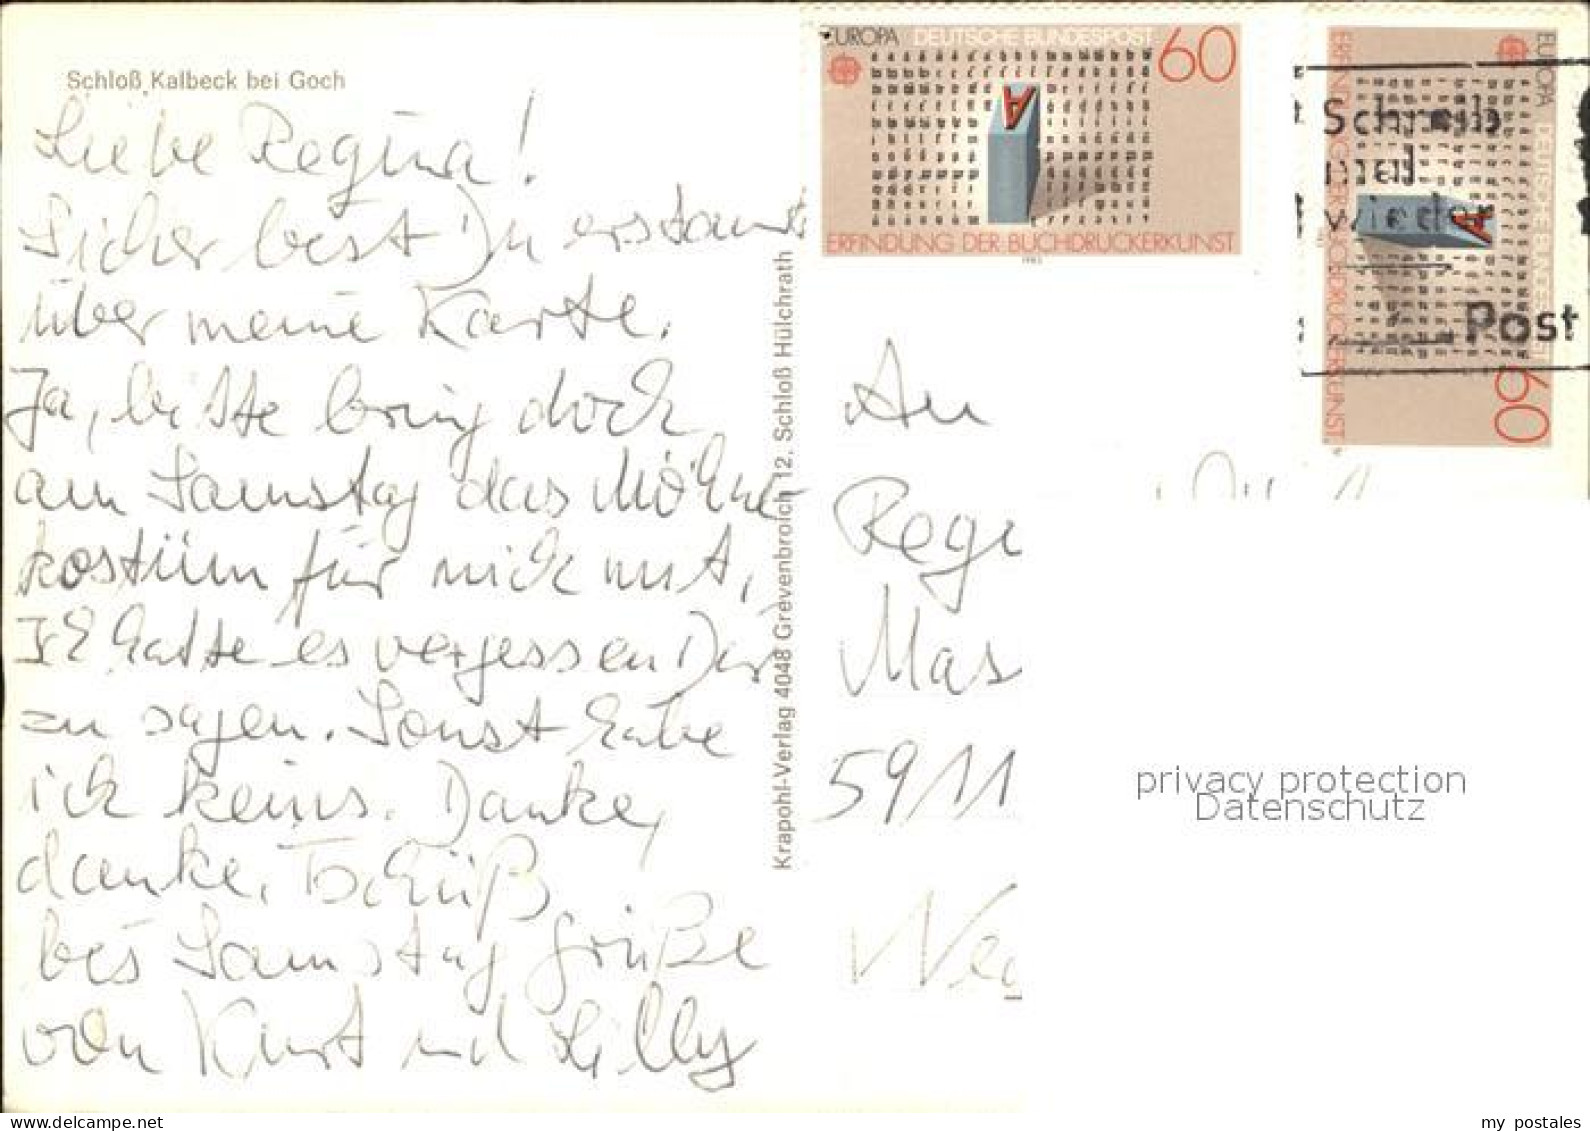 Schloß Kalbeck bei Goch
Liebe Regina!
Sicher best Du erstaunt
über meine Karte.
Ja, bitte bring doch
am Samstag das Möhne
kostüm für mich mit,
Ich hatte es vergessen Dir
zu sagen. Sonst habe
ich keins. Danke,
danke. Tschüß
bis Samstag Grüße
von Kurt und Lilly
Krapohl-Verlag 4048 Grevenbroich 12, Schloß Hülchrath
EUROPA DEUTSCHE BUNDESPOST 60
ERFINDUNG DER BUCHDRUCKERKUNST
1983
EUROPA DEUTSCHE BUNDESPOST 60
ERFINDUNG DER BUCHDRUCKERKUNST
Schreib
mal
wieder
Post
An
Regi
Mas
5911
privacy protection
Datenschutz
my postales